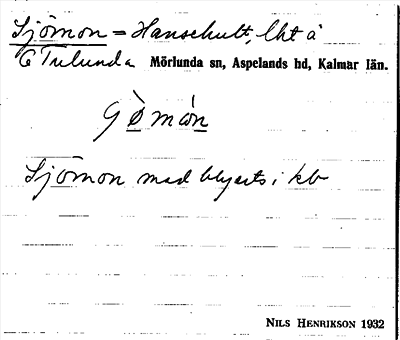 Sjömon = Hanschult, lht å
G Tulunda Mörlunda sn, Aspelands hd, Kalmar län.
Sjömon med blyerts i kb
NILS HENRIKSON 1932